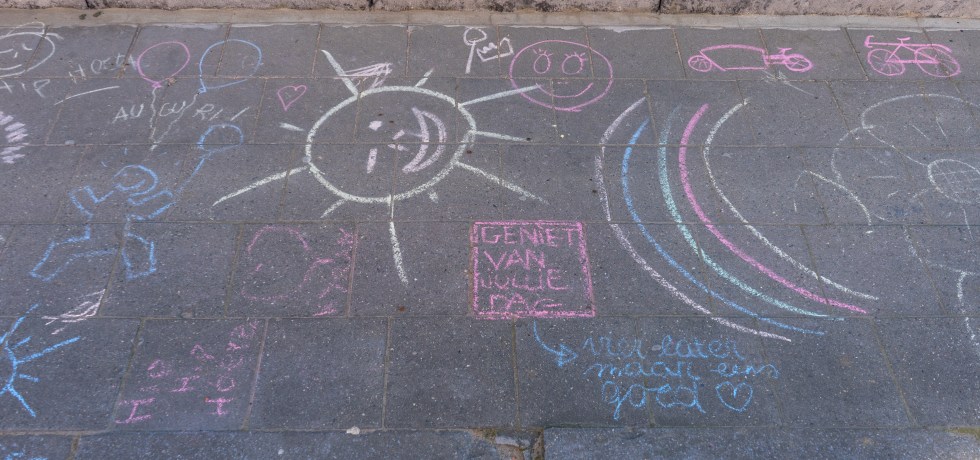 HIP
HOERA
AUGURI
GENIET
VAN
JULLIE
DAG
maar eens
goed